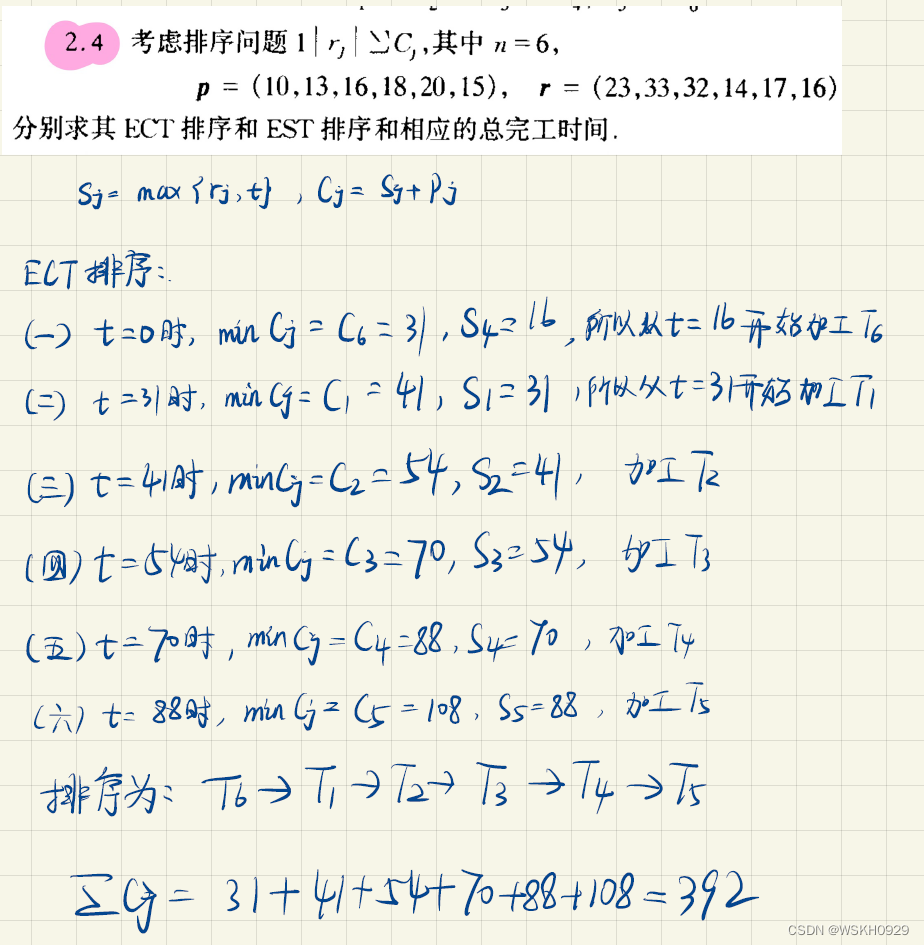 2.4 考虑排序问题 1 | rj | ∑Cj,其中 n=6,
p = (10,13,16,18,20,15), r = (23,33,32,14,17,16)
分别求其 ECT 排序和 EST 排序和相应的总完工时间.
Sj= max{rj,t} , Cj= Sj+Pj
ECT排序:
(一) t=0时, min Cj = C6=31 , S4=16 , 所以从t=16开始加工T6
(二) t=31时, min Cj= C1 = 41, S1=31 ,所以从t=31开始加工T1
(三) t=41时, minCj=C2=54, S2=41, 加工T2
(四) t=54时, minCj=C3=70, S3=54, 加工T3
(五) t=70时, minCj=C4=88, S4=70 , 加工T4
(六) t= 88时, min Cj= C5 = 108, S5=88 , 加工T5
排序为: T6→T1→T2→T3→T4→T5
∑Cj= 31+41+54+70+88+108=392
CSDN @WSKH0929